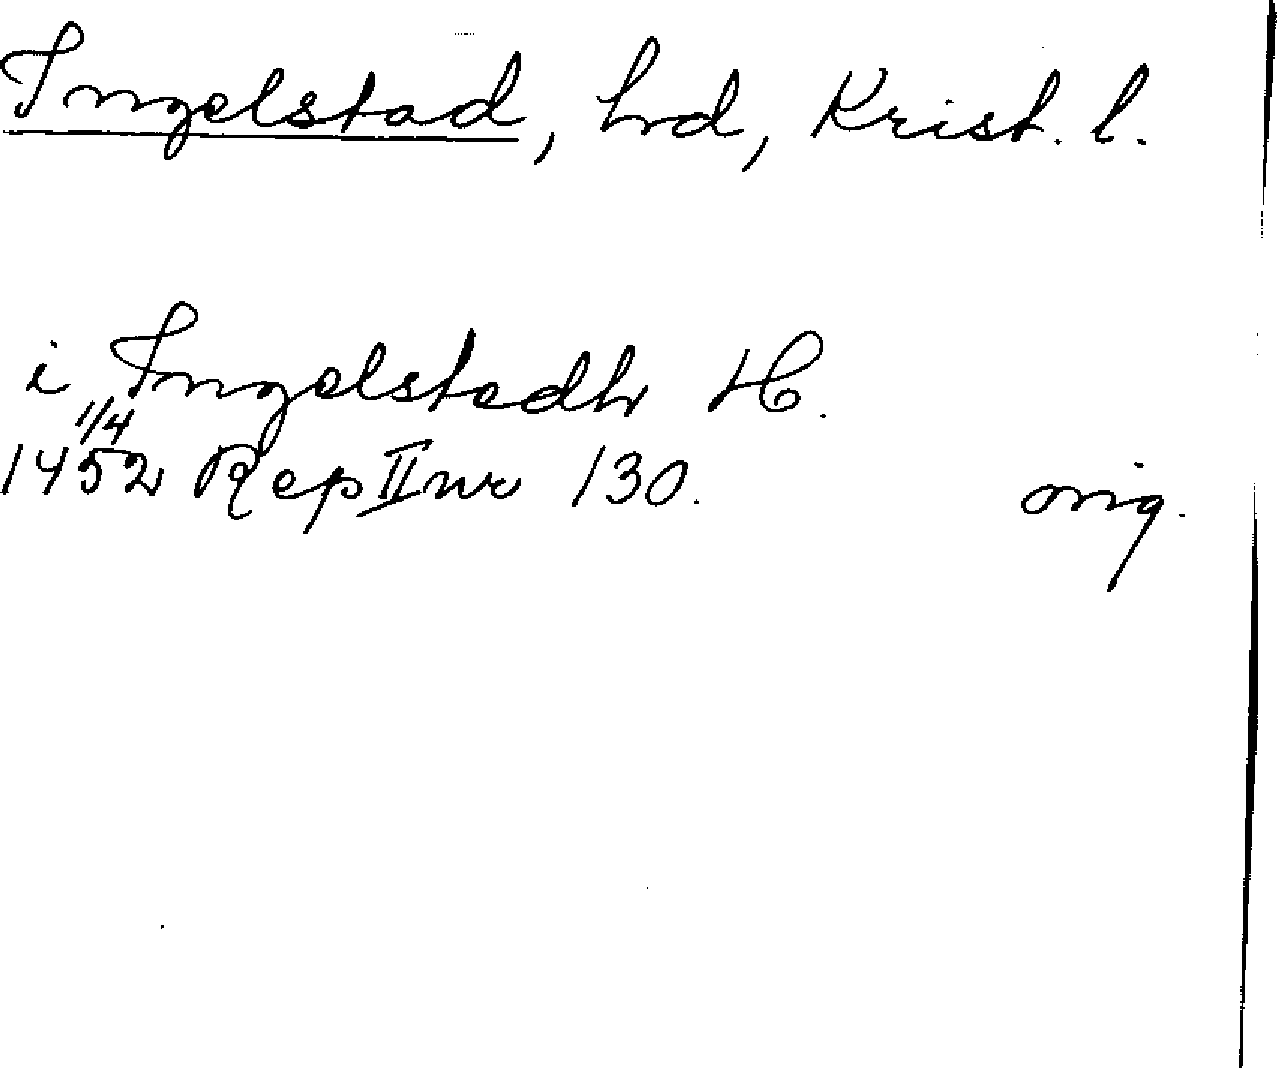 Ingelstad, hrd, Krist. l.
i Ingelstedh H.
1/4
1452 Rep II nr 130. orig.